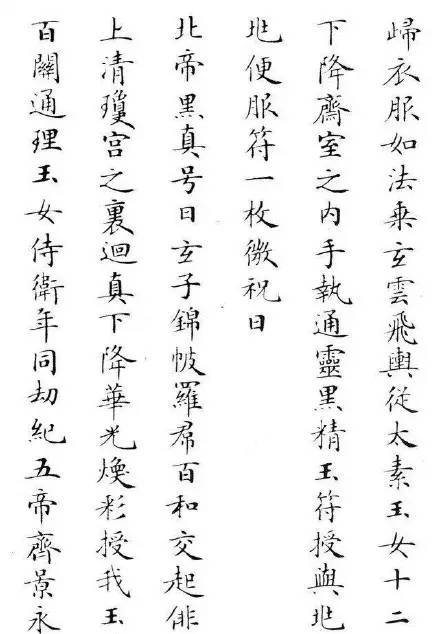 歸衣服如法乗玄雲飛輿從太素玉女十二
下降齋室之内手執通靈黒精玉符授與兆
兆便服符一枚微祝曰
北帝黒真号曰玄子錦帔羅帬百和交起俳
上清瓊宫之裏迴真下降華光煥彩授我玉
百關通理玉女侍衛年同劫紀五帝齊景永